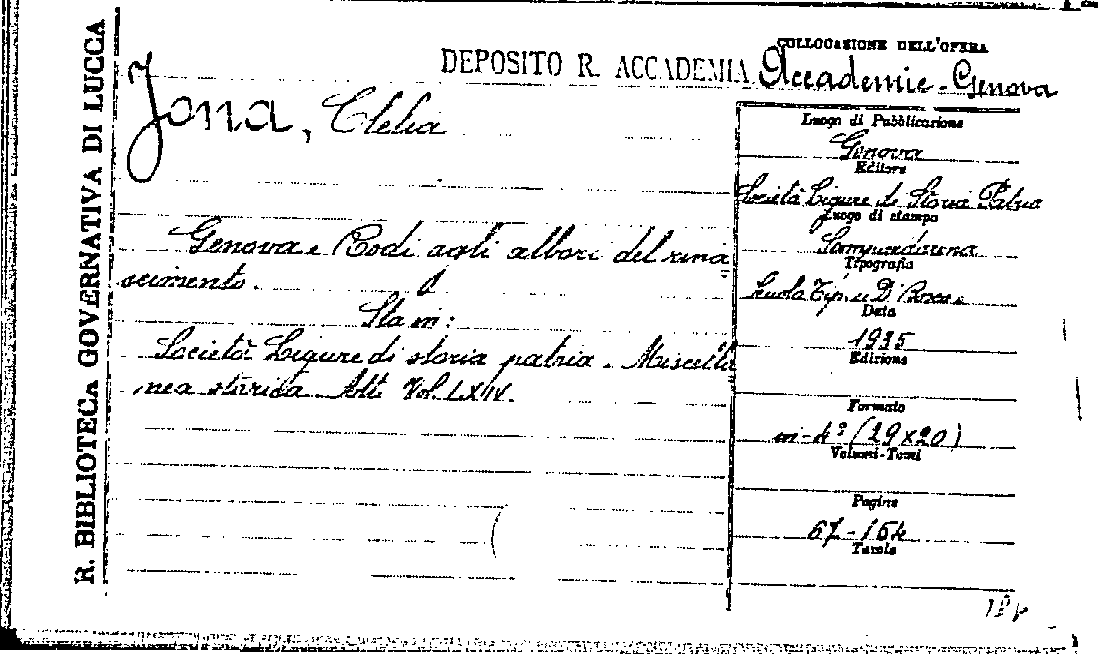 R. BIBLIOTECA GOVERNATIVA DI LUCCA
DEPOSITO R. ACCADEMIA
COLLOCAZIONE DELL'OPERA
Accademie - Genova
Jona, Clelia
Genova e Rodi agli albori del rina
scimento.
Sta in:
Società Ligure di storia patria. Miscella
nea storica Atti Vol. LXIV.
Luogo di Pubblicazione
Genova
Editore
Società Ligure di Storia Patria
Luogo di stampa
Sampierdarena
Tipografia
Scuola Tip. D. Bosco
Data
1935
Edizione
Formato
in-4° (29x20)
Volumi-Tomi
Pagine
67-154
Tavole